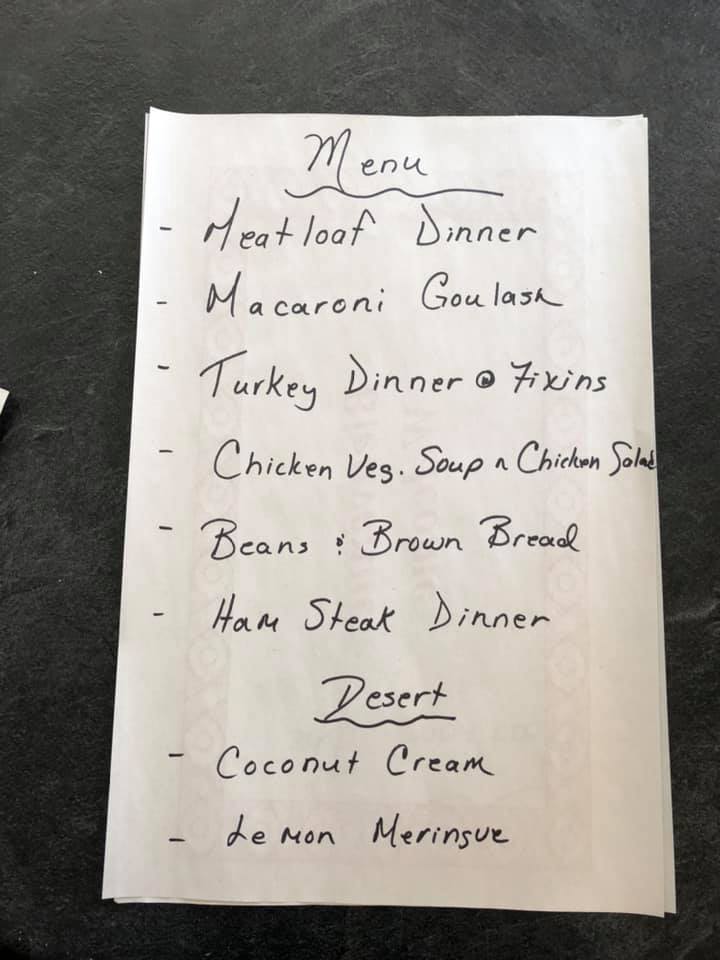 Menu
- Meatloaf Dinner
- Macaroni Goulash
- Turkey Dinner @ Fixins
- Chicken Veg. Soup n Chicken Salad
- Beans & Brown Bread
- Ham Steak Dinner
Desert
- Coconut Cream
- Lemon Meringue